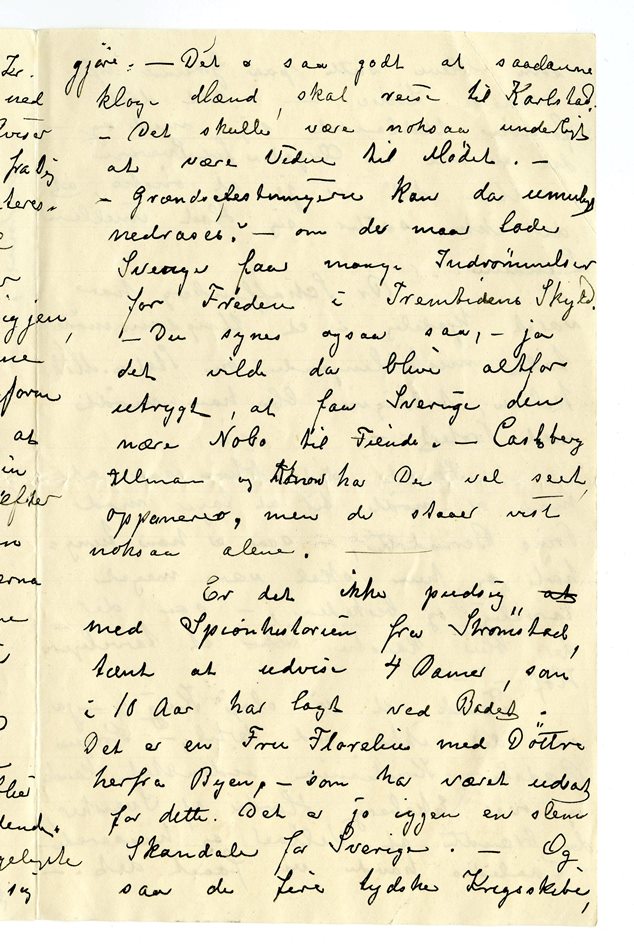 gjöre. — Det er saa godt at saadanne
Ter.
kloge Mænd, skal reise til Karlstad.
ned
— Det skulle være noksaa underligt
fra Dig
at være Vidne til Mödet. —
teres.
— Grændsefestningerne kan da umulig
nedrases? — om de maa lade
Sverige faa mange Indrömmelser
for Freden i Fremtidens Skyld.
igjen,
— Du synes ogsaa saa, — ja
ne
det vilde da blive altfor
form
utrygt, at faa Sverige den
at
nære Nabo til Fiende. — Castberg
in
Ullman og Konow har Du vel seet,
efter
opponerer, men de staaer vist
noksaa alene. —
erna
Er det ikke pudsig at
ne
med Spionhistorien fra Strömstad,
tænt at udvise 4 Damer, som
i 10 Aar har lagt ved Badet.
Det er en Fru Florelius med Döttre
herfra Byen, — som har været udsat
for dette. Det er jo iggjen en slem
dende.
Skandale for Sverige. — Og
sig
saa de fire tydske Krigsskibe,